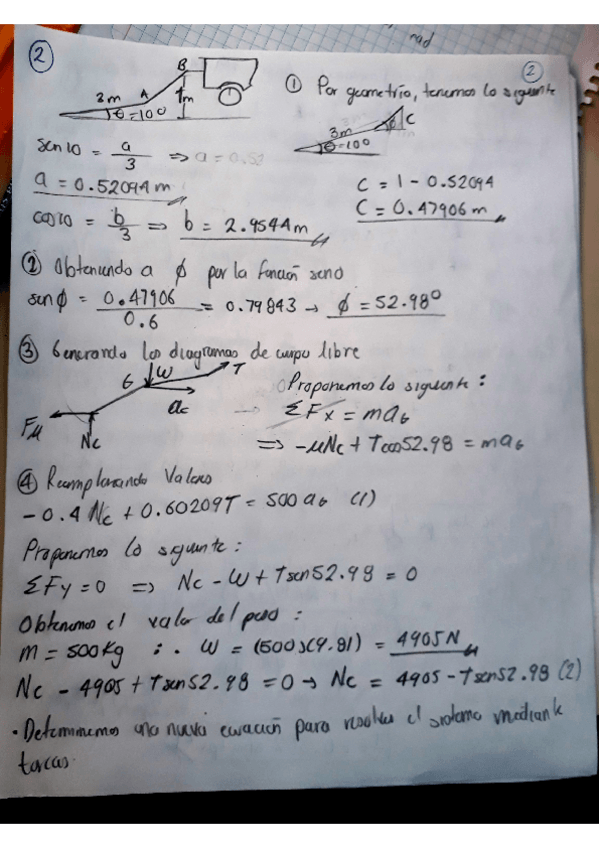 rad
② ②
B
3m A 1m
θ=10°
① Por geometría, tenemos lo siguiente
3m C
θ=10°
sen10 = a/3 => a = 0.52
a = 0.52094 m
C = 1 - 0.52094
C = 0.47906 m
cos10 = b/3 => b = 2.9544m
② Obteniendo a ϕ por la función seno
senϕ = 0.47906/0.6 = 0.79843 → ϕ = 52.98°
③ Generando los diagramas de cuerpo libre
G W T
aG
Fμ Nc
Proponemos lo siguiente :
ΣFx = maG
=> -μNc + Tcos52.98 = maG
④ Reemplazando Valores
-0.4 Nc + 0.60209T = 500 aG (1)
Proponemos lo siguiente :
ΣFy = 0 => Nc - W + Tsen52.98 = 0
Obtenemos el valor del peso :
m = 500kg ∴ W = (500)(9.81) = 4905 N
Nc - 4905 + Tsen52.98 = 0 → Nc = 4905 - Tsen52.98 (2)
· Determinemos una nueva ecuación para resolver el sistema mediante
torcas.